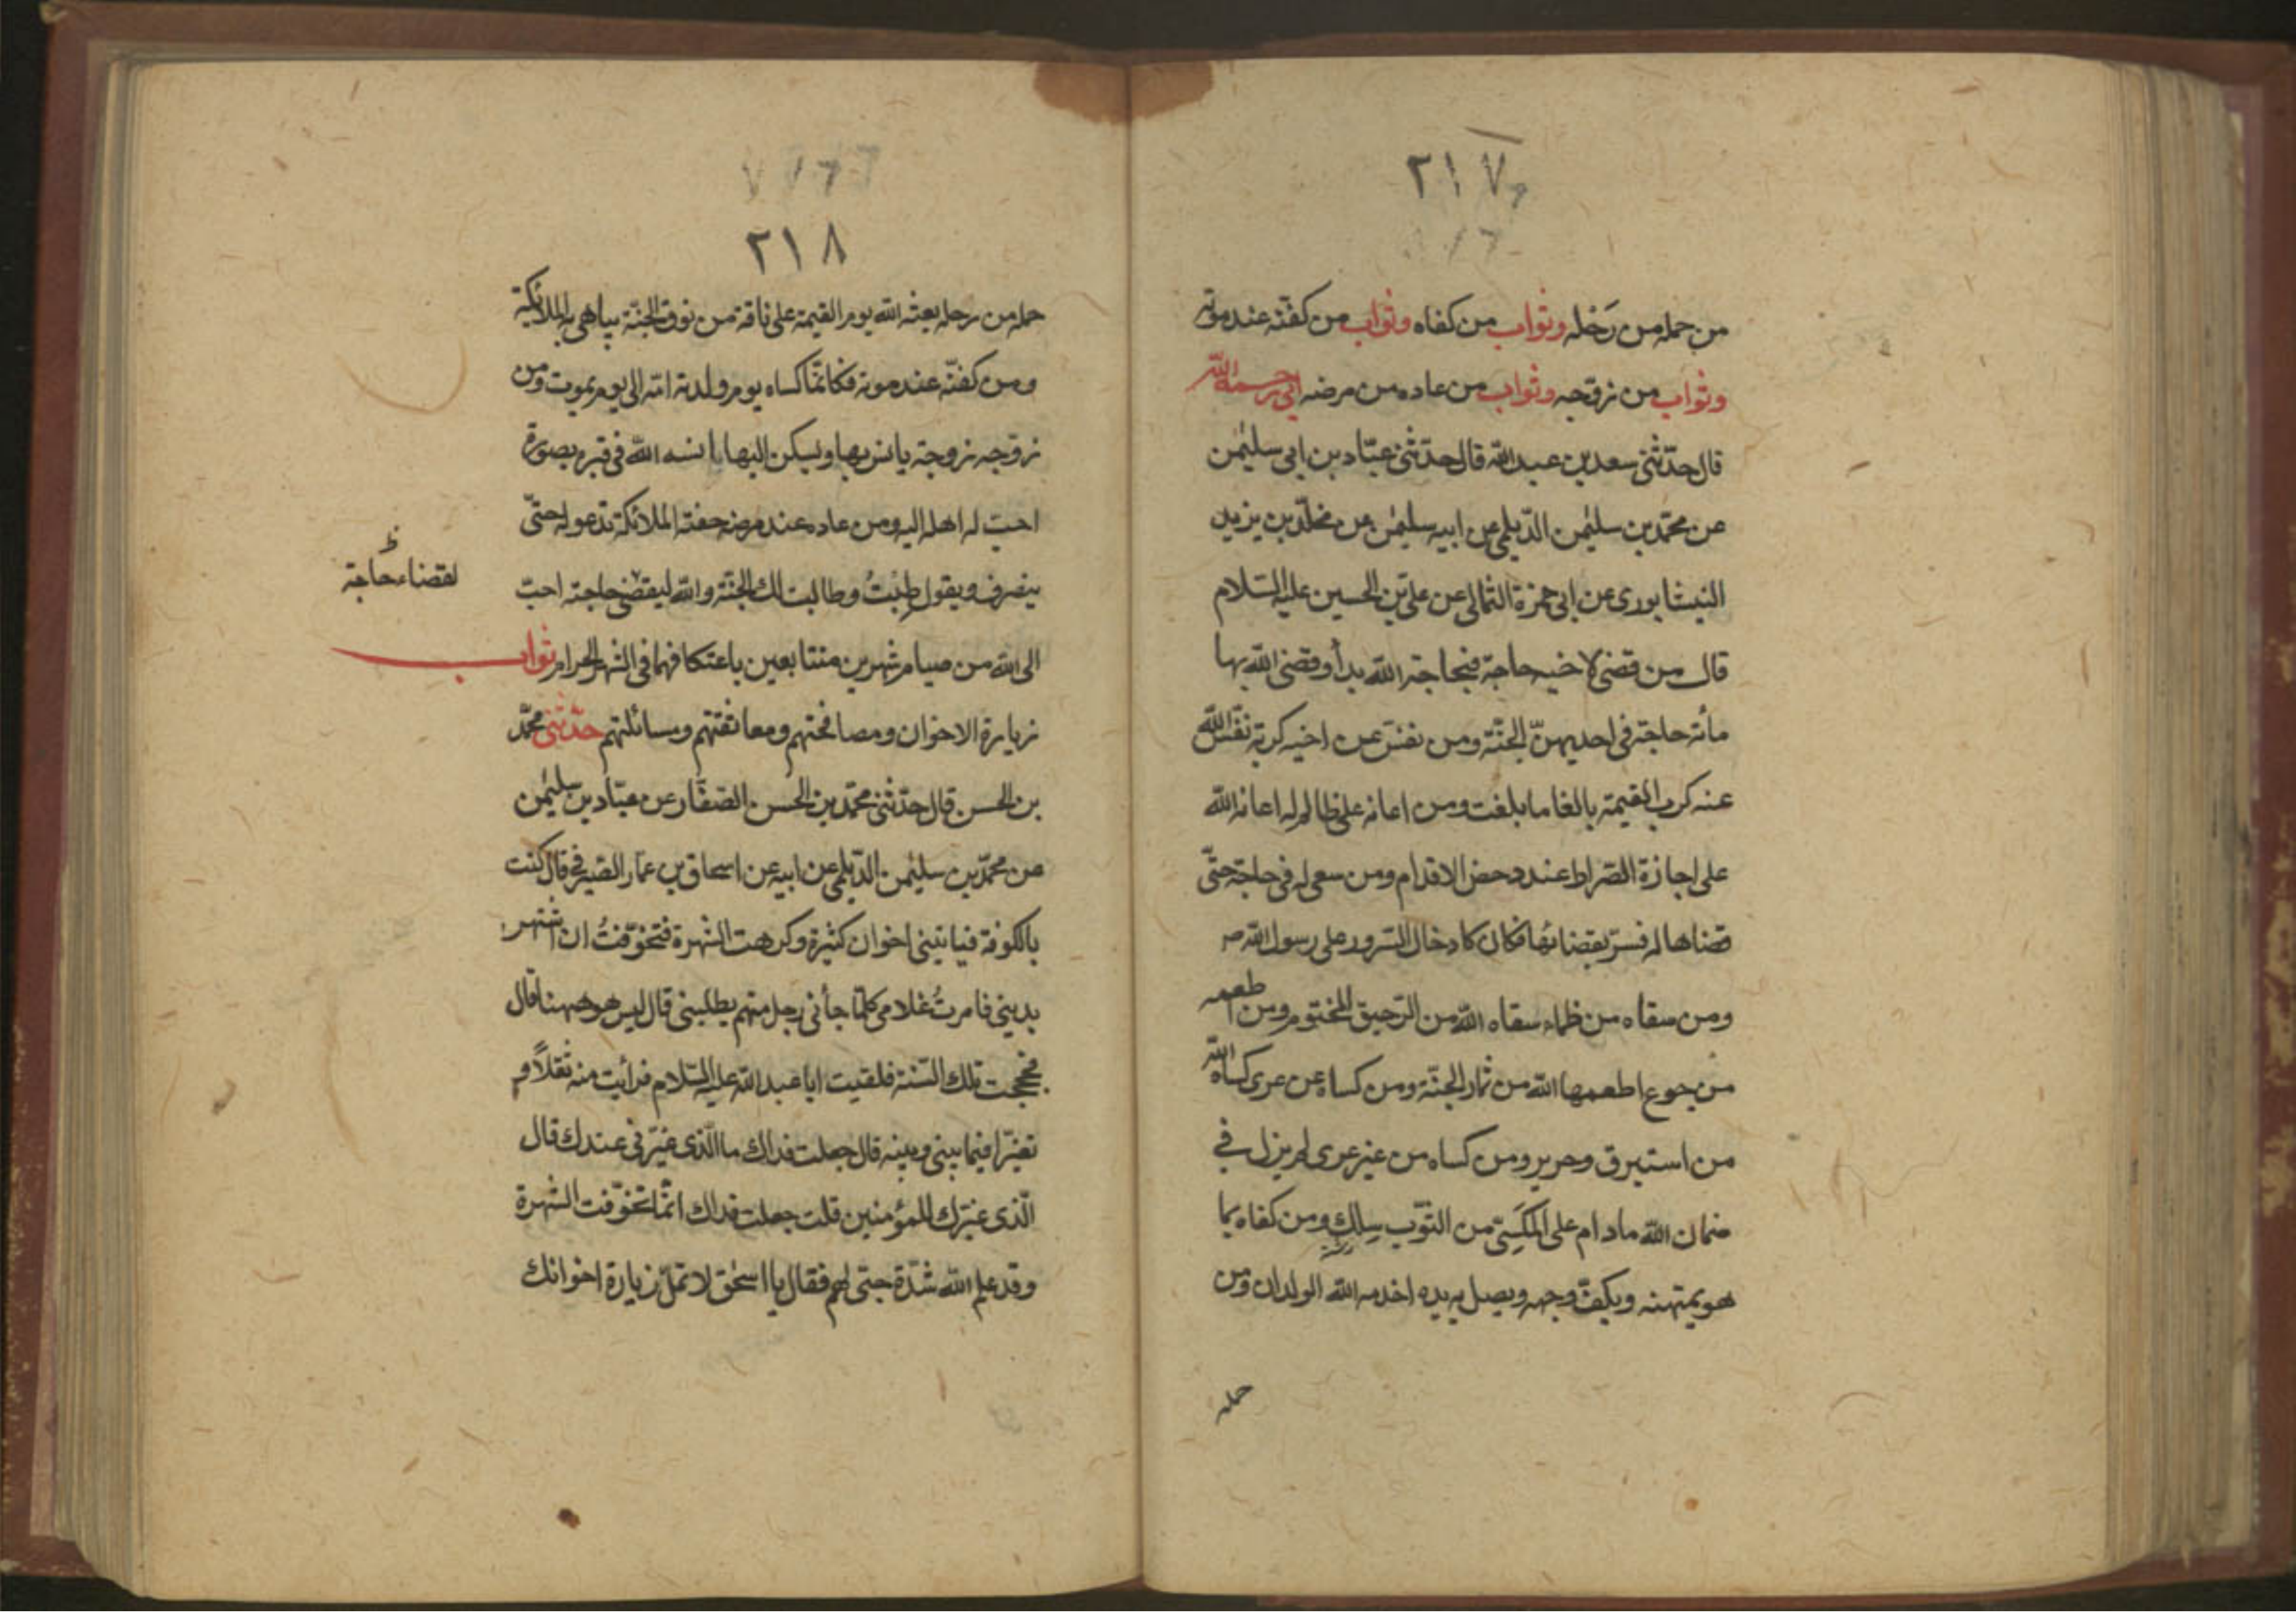 ٢١٧
من حمله من رَحْله وثواب من كفاه وثواب من كفّنه عند موته
وثواب من زوّجه وثواب من عاده من مرضه ابى رحمه الله
قال حدّثنى سعد بن عبد الله قال حدّثنى عبّاد بن ابى سليمٰن
عن محمّد بن سليمٰن الدّيلمى عن ابيه سليمٰن عن مخلّد بن يزيد
النيشابورى عن ابى حمزة الثمالى عن علىّ بن الحسين عليه السّلام
قال من قضى لاخيه حاجة فبحاجة الله بدأ وقضى الله بها
مأئة حاجة فى احديهنّ الجنّة ومن نفّس عن اخيه كربة نفّس الله
عنه كرب القيمة بالغا ما بلغت ومن اعانه على ظالم له اعانه الله
على اجازة الصّراط عند دحض الاقدام ومن سعى له فى حاجة حتّى
قضاها له فسرّ بقضائها فكان كادخال السّرور على رسول الله ص
ومن سقاه من ظماء سقاه الله من الرّحيق المختوم ومن اطعمه
من جوع اطعمها الله من ثمار الجنّة ومن كساه من عرى كساه الله
من استبرق وحرير ومن كساه من غير عرى لم يزل فى
ضمان الله مادام على المكسىّ من الثّوب سلك ومن كفاه بما
هو يمتهنه ويكفّ وجهه ويصل به يده اخدمه الله الولدان ومن
حمله
٢١٨
حمله من رحله بعثه الله يوم القيمة على ناقة من نوق الجنّة يباهى به الملائكة
ومن كفّنه عند موته فكانّما كساه يوم ولدته امّه الى يوم يموت ومن
زوّجه زوجة يانس بها ويسكن اليها انسه الله فى قبره بصورة
احبّ له اهله اليه ومن عاده عند مرضه حفته الملائكة تدعو له حتّى
ينصرف ويقول طِبْتُ وطابت لك الجنّة والله ليقضى حاجته احبّ
لقضاء حاجة
الى الله من صيام شهرين متتابعين باعتكافهما فى الشهر الحرام ثواب
زيارة الاخوان ومصافحتهم ومعانقتهم ومسائلتهم حدّثنى محمّد
بن الحسن قال حدّثنى محمّد بن الحسن الصفّار عن عبّاد بن سليمٰن
عن محمّد بن سليمٰن الدّيلمى عن ابيه عن اسحاق بن عمّار الصّيرفى قال كنت
بالكوفة فياتينى اخوان كثيرة وكرهت الشهرة فتخوّفتُ ان اشتهر
بدينى فامرتُ غلامى كلّما جاءنى رجل منهم يطلبنى قال ليس هو ههنا قال
فحججت تلك السّنة فلقيت ابا عبد الله عليه السّلام فرأيت منه ثقلاً و
تغيّرا فيما بينى وبينه قال جعلت فداك ما الّذى غيّرنى عندك قال
الّذى غيّرك للمؤمنين قلت جعلت فداك انّما تخوّفت الشهرة
وقد علم الله شدّة حبّى لهم فقال يا اسحٰق لا تملّ زيارة اخوانك